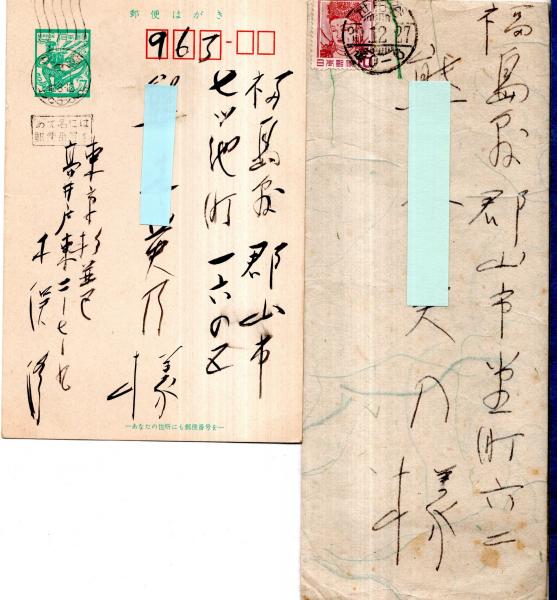 郵便はがき
963
福島県郡山市
七ツ池町一六の五
英乃様
東京杉並区
高井戸東二ー七ー
木俣修
あて名には
ーあなたの住所にも郵便番号をー
日本郵便
12.27
福島県郡山市堂町六二
英乃様